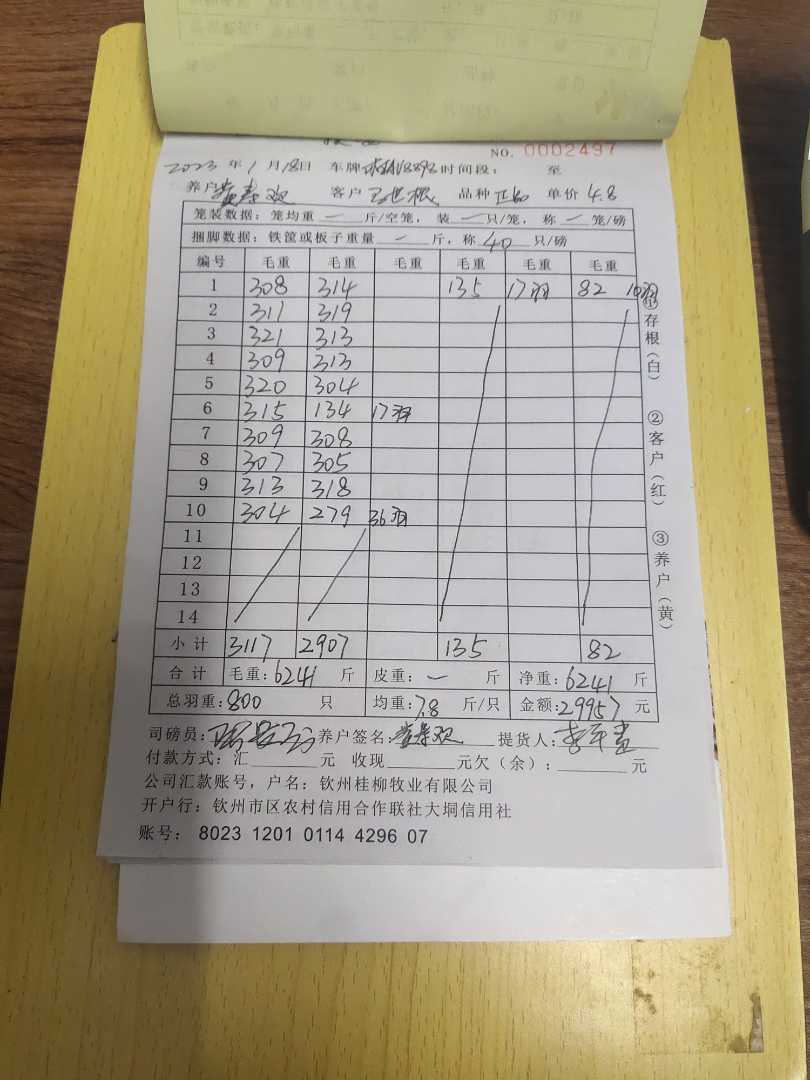 NO. 0002497
2023 年 1 月 18日 车牌 时间段： 至
养户 客户 王世根 品种 正品 单价 4.8
笼装数据：笼均重 一 斤/空笼，装 一 只/笼，称 一 笼/磅
捆脚数据：铁筐或板子重量 一 斤，称 40 只/磅
编号 毛重 毛重 毛重 毛重 毛重 毛重
1 308 314 135 17羽 82 10羽
2 311 319
3 321 313
4 309 313
5 320 304
6 315 134 17羽
7 309 308
8 307 305
9 313 318
10 304 279 36羽
11
12
13
14
小计 3117 2907 135 82
合计 毛重：6241 斤 皮重：一 斤 净重：6241 斤
总羽重：800 只 均重：7.8 斤/只 金额：29957 元
司磅员： 养户签名： 提货人：
付款方式：汇 元 收现 元欠（余）： 元
公司汇款账号，户名：钦州桂柳牧业有限公司
开户行：钦州市区农村信用合作联社大垌信用社
账号： 8023 1201 0114 4296 07
①存根（白）
②客户（红）
③养户（黄）